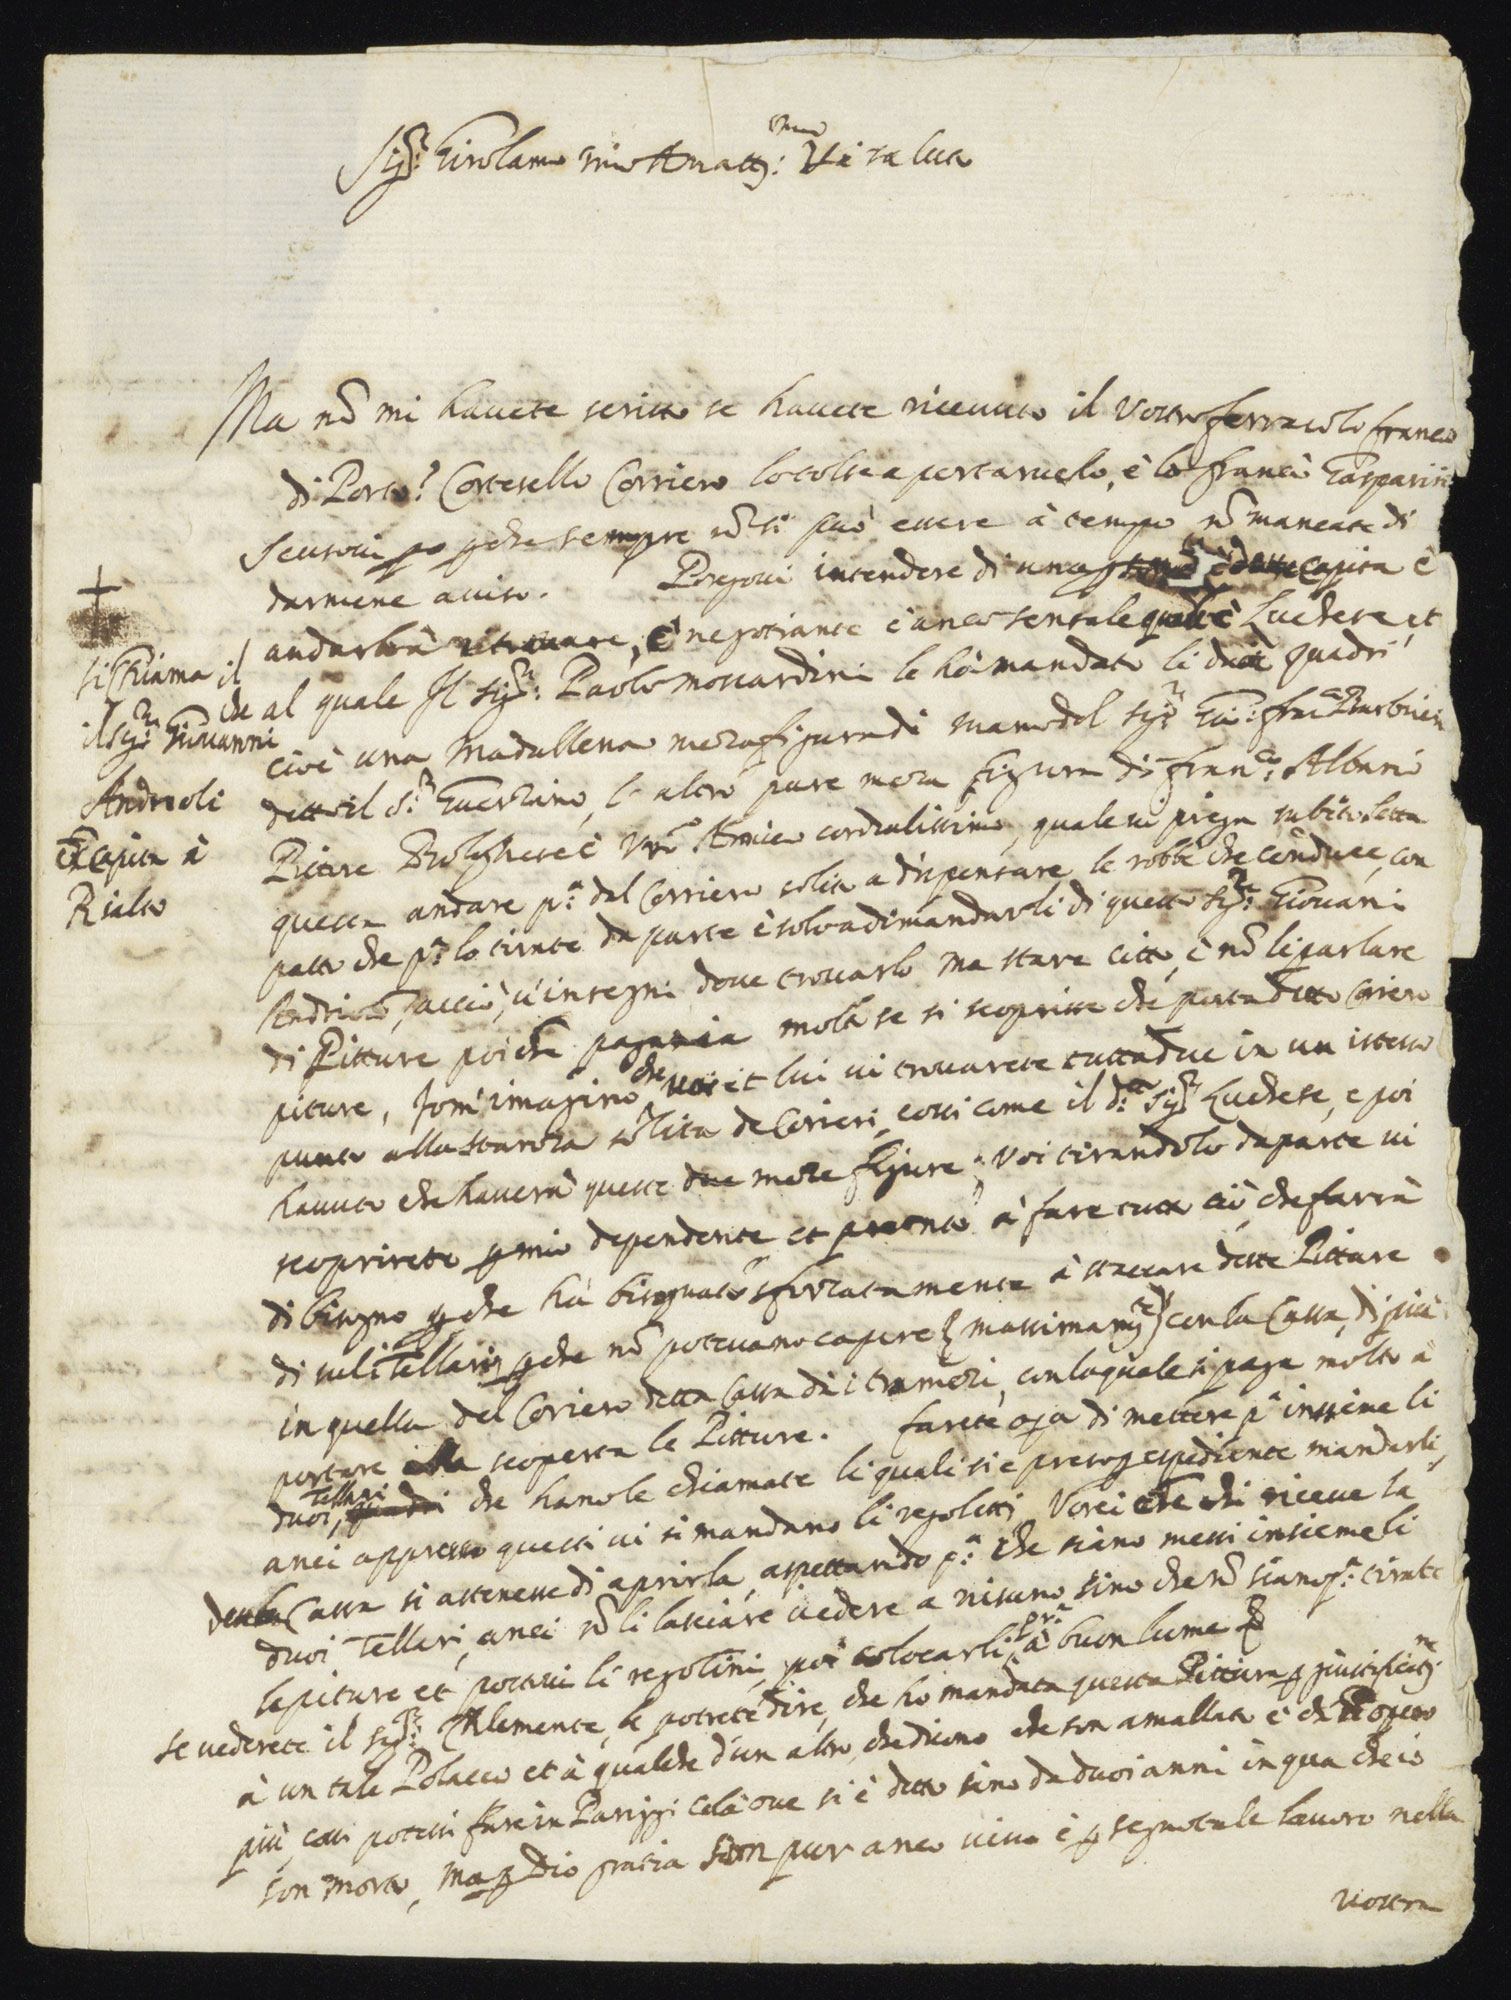 Sig.r Girolamo mio Amatt.mo Vi saluto
Ma nõ mi havete scritto se havete riceuuto il Vostro ferracolo franco
di Porto? Cortesello Corriero lo tolse a portaruelo, è lo francò Gasparini
senson perche sempre nõ si può essere à tempo nõ mancate di
darmene auiso. Pregoui intendere di uno capita è
andarlo à ritrouare, è negotiante è anco sensale qual è Luchese et
che al quale Il Sig.r Paolo moscardini le hà mandato li due quadri
cioè una Madallena meza figura di mano del Sig.r Gio: Fran.co Barbieri
detto il S.r Guerzino, l'altro pure meza figura di Fran.co Albani
Pittore Bolognese è Vro Amico cordialissimo, quale vi prega subito letta
questa andare p.a dal Corriero solito a dispensare le robbe che conduce, con
patto che p.a lo tirate da parte è solo adimandarli di questo Sig.r Giouani
Andrioli, acciò, v'insegni doue trouarlo ma stare citto, è nõ li parlare
di Pitture poiche pagaria molto se si scoprisse che porta detto Coriero
piture, Io m'imagino che voi et lui vi trouarete tutta due in un istesso
punto alla stanza solita de Corieri, cossi come il d.o Sig.r Luchese, e poi
hauuto che hauerà queste due meze figure; Voi tirandolo da parte vi
scoprirete per mio dependente, et pronto à fare tutto ciò, che farrà
di bisogno perche hà bisognato sforzatamente à staccare dette Pitture
di sul i Tellari perche nõ poteuano capere (massimam.te) con la Cassa, di più
in quella del Coriero detta Cassa dà i tramezi, con la quale si paga molto a
portare alla scoperta le Pitture. Farete opa di mettere p.a insieme li
duoi Tellari che hanole chiamate li quali si è preso per espediente mandarli,
anci appresso questi vi si mandano li regoletti, Vorei che chi riceue la
Cassa si astenesse di aprirla, aspettando p.a che siano messi insieme li
duoi Tellari, anci nõ li lasciare vedere a nisuno sino che nõ siano p.a tirate
le piture et postoui li regolini, poi colocarli p.a à buon lume
se vederete il Sig.r Clemente, le potrete dire, che ho mandata questa Pittura per giustificat.ne
à un tale Polacco et à qualche d'un altro, che dicono che son amallato è che nõ opero
più, cosi potessi fare in Pariggi colà oue si è detto sino da duoi anni in qua che io
son morto, ma per Dio gratia son pur anco viuo è per segno tale lauoro nella
vostra
✝
si chiama il
il Sig.r Giouanni
Andrioli
che capita à
Rialto